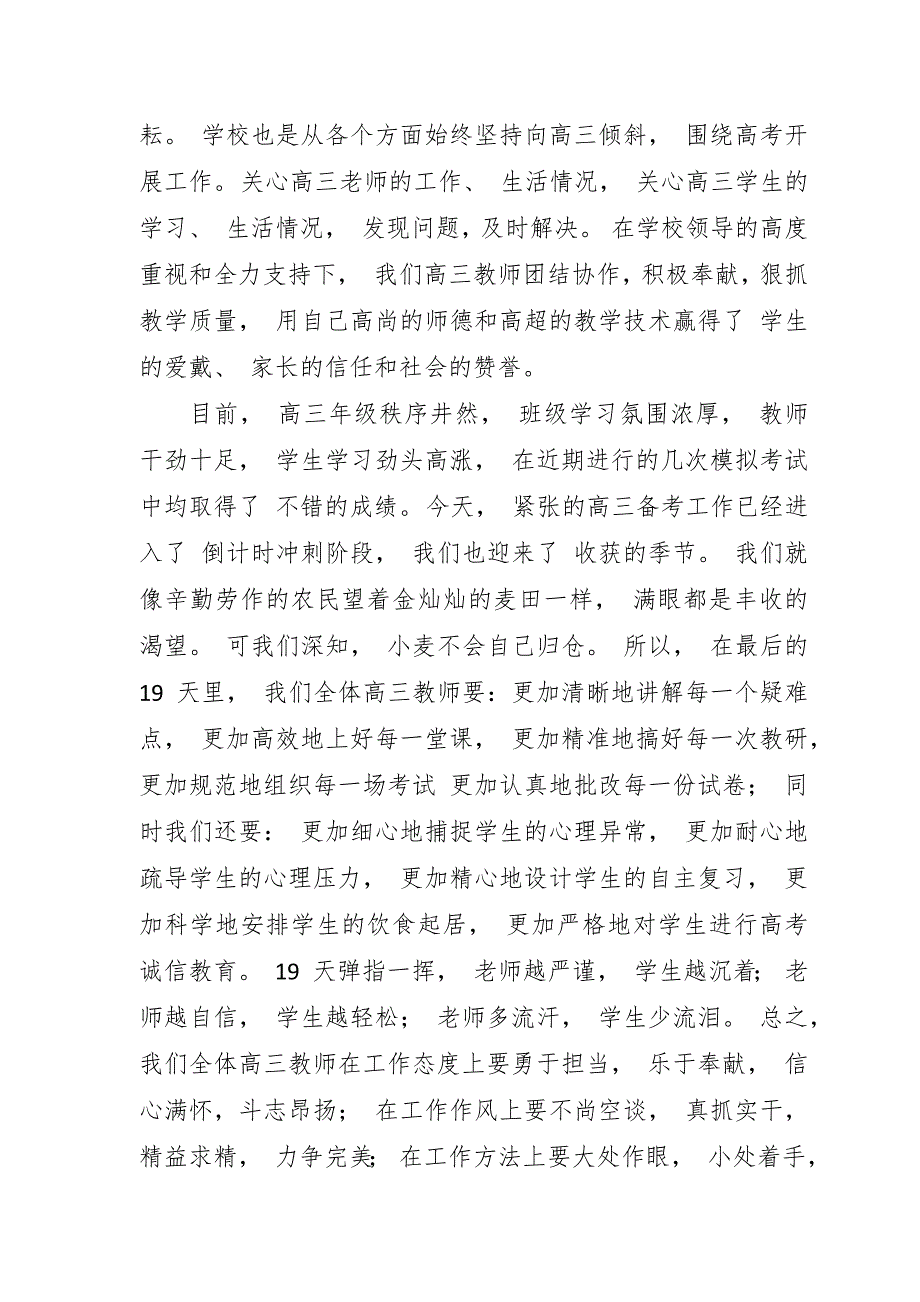 耘。 学校也是从各个方面始终坚持向高三倾斜， 围绕高考开
展工作。关心高三老师的工作、 生活情况， 关心高三学生的
学习、 生活情况， 发现问题，及时解决。 在学校领导的高度
重视和全力支持下， 我们高三教师团结协作，积极奉献，狠抓
教学质量， 用自己高尚的师德和高超的教学技术赢得了 学生
的爱戴、 家长的信任和社会的赞誉。
目前， 高三年级秩序井然， 班级学习氛围浓厚， 教师
干劲十足， 学生学习劲头高涨， 在近期进行的几次模拟考试
中均取得了 不错的成绩。今天， 紧张的高三备考工作已经进
入了 倒计时冲刺阶段， 我们也迎来了 收获的季节。 我们就
像辛勤劳作的农民望着金灿灿的麦田一样， 满眼都是丰收的
渴望。 可我们深知， 小麦不会自己归仓。 所以， 在最后的
19 天里， 我们全体高三教师要：更加清晰地讲解每一个疑难
点， 更加高效地上好每一堂课， 更加精准地搞好每一次教研，
更加规范地组织每一场考试 更加认真地批改每一份试卷； 同
时我们还要： 更加细心地捕捉学生的心理异常， 更加耐心地
疏导学生的心理压力， 更加精心地设计学生的自主复习， 更
加科学地安排学生的饮食起居， 更加严格地对学生进行高考
诚信教育。 19 天弹指一挥， 老师越严谨， 学生越沉着；老
师越自信， 学生越轻松； 老师多流汗， 学生少流泪。 总之，
我们全体高三教师在工作态度上要勇于担当， 乐于奉献， 信
心满怀，斗志昂扬； 在工作作风上要不尚空谈， 真抓实干，
精益求精， 力争完美；在工作方法上要大处作眼， 小处着手，